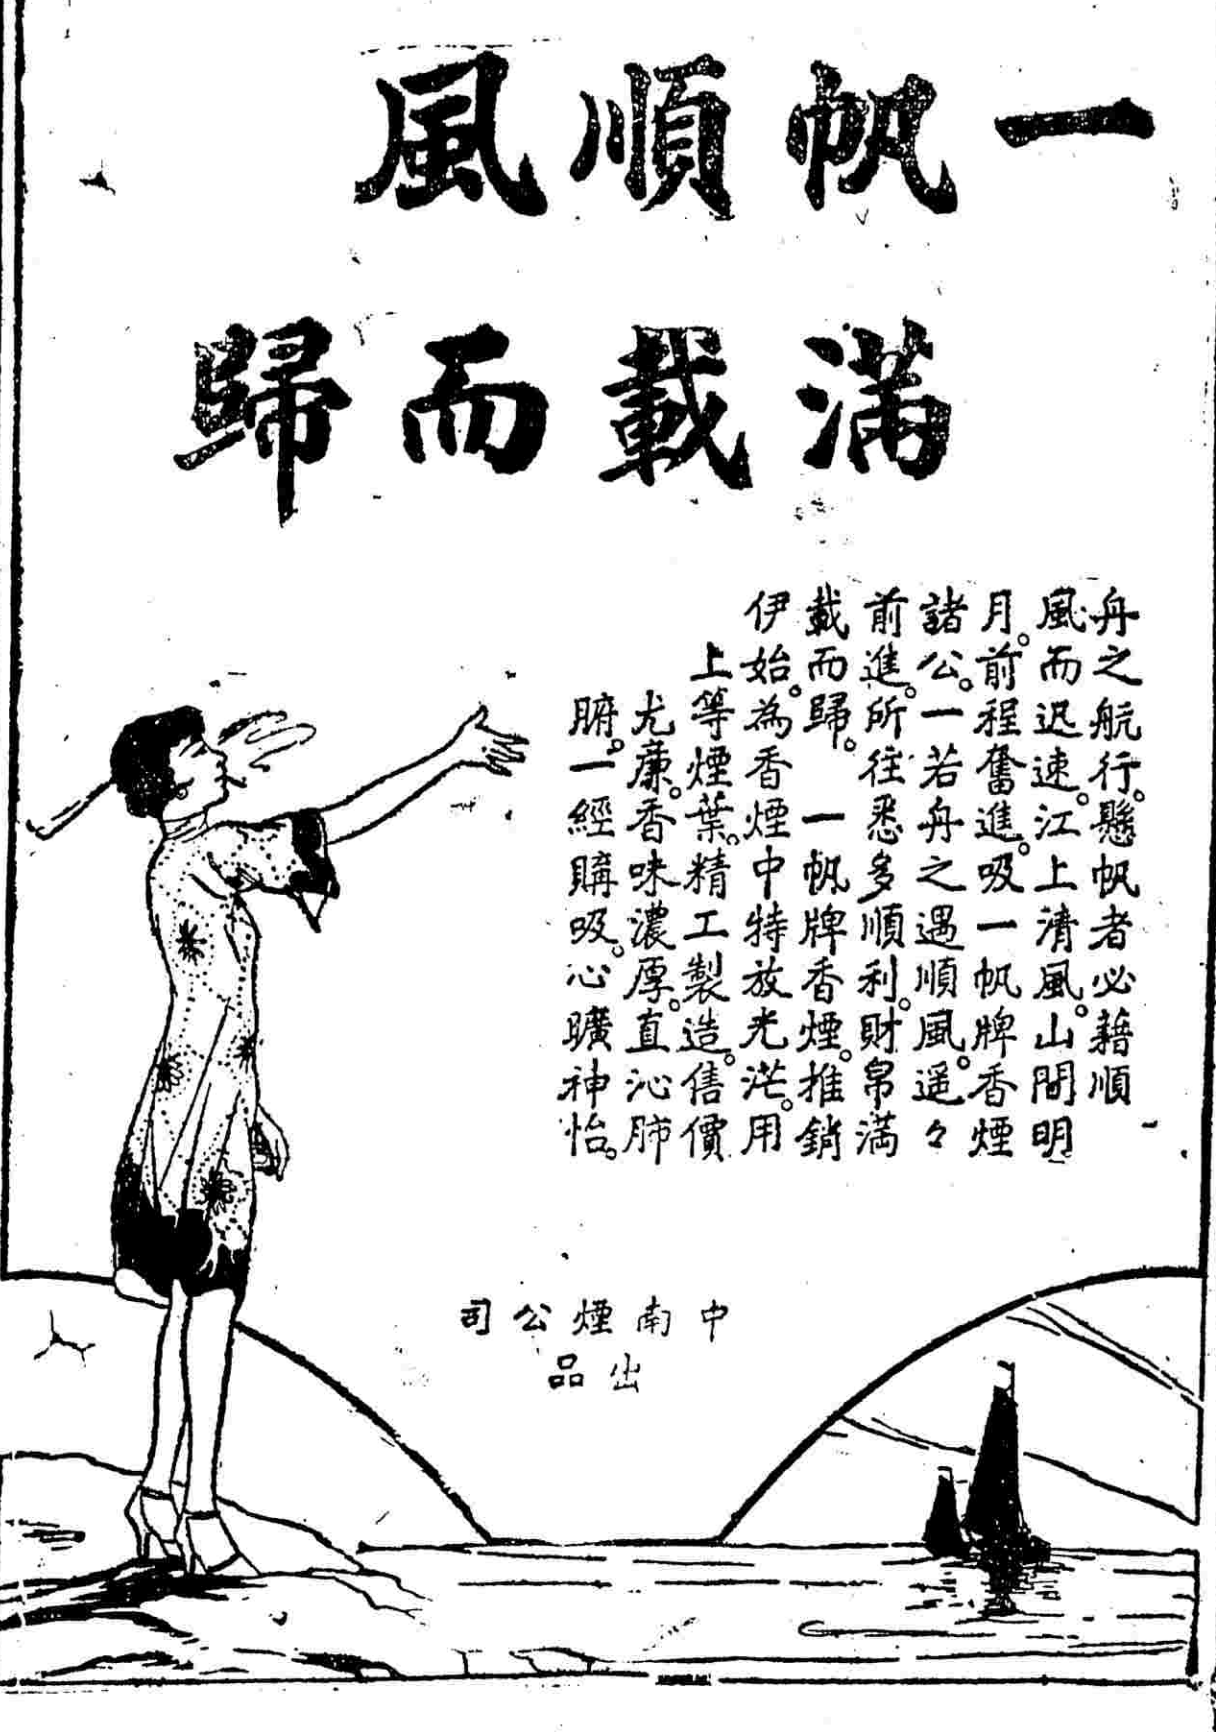 一帆順風
滿載而歸
舟之航行。懸帆者必藉順
風而迟速。江上清風。山間明
月。前程奮進。吸一帆牌香煙
諸公。一若舟之遇順風。遥々
前進。所往悉多順利。財帛满
載而歸。一帆牌香煙。推銷
伊始。為香煙中特放光茫。用
上等煙葉。精工製造。售價
尤廉。香味濃厚。直沁肺
腑。一經購吸。心曠神怡。
中南煙公司
出品